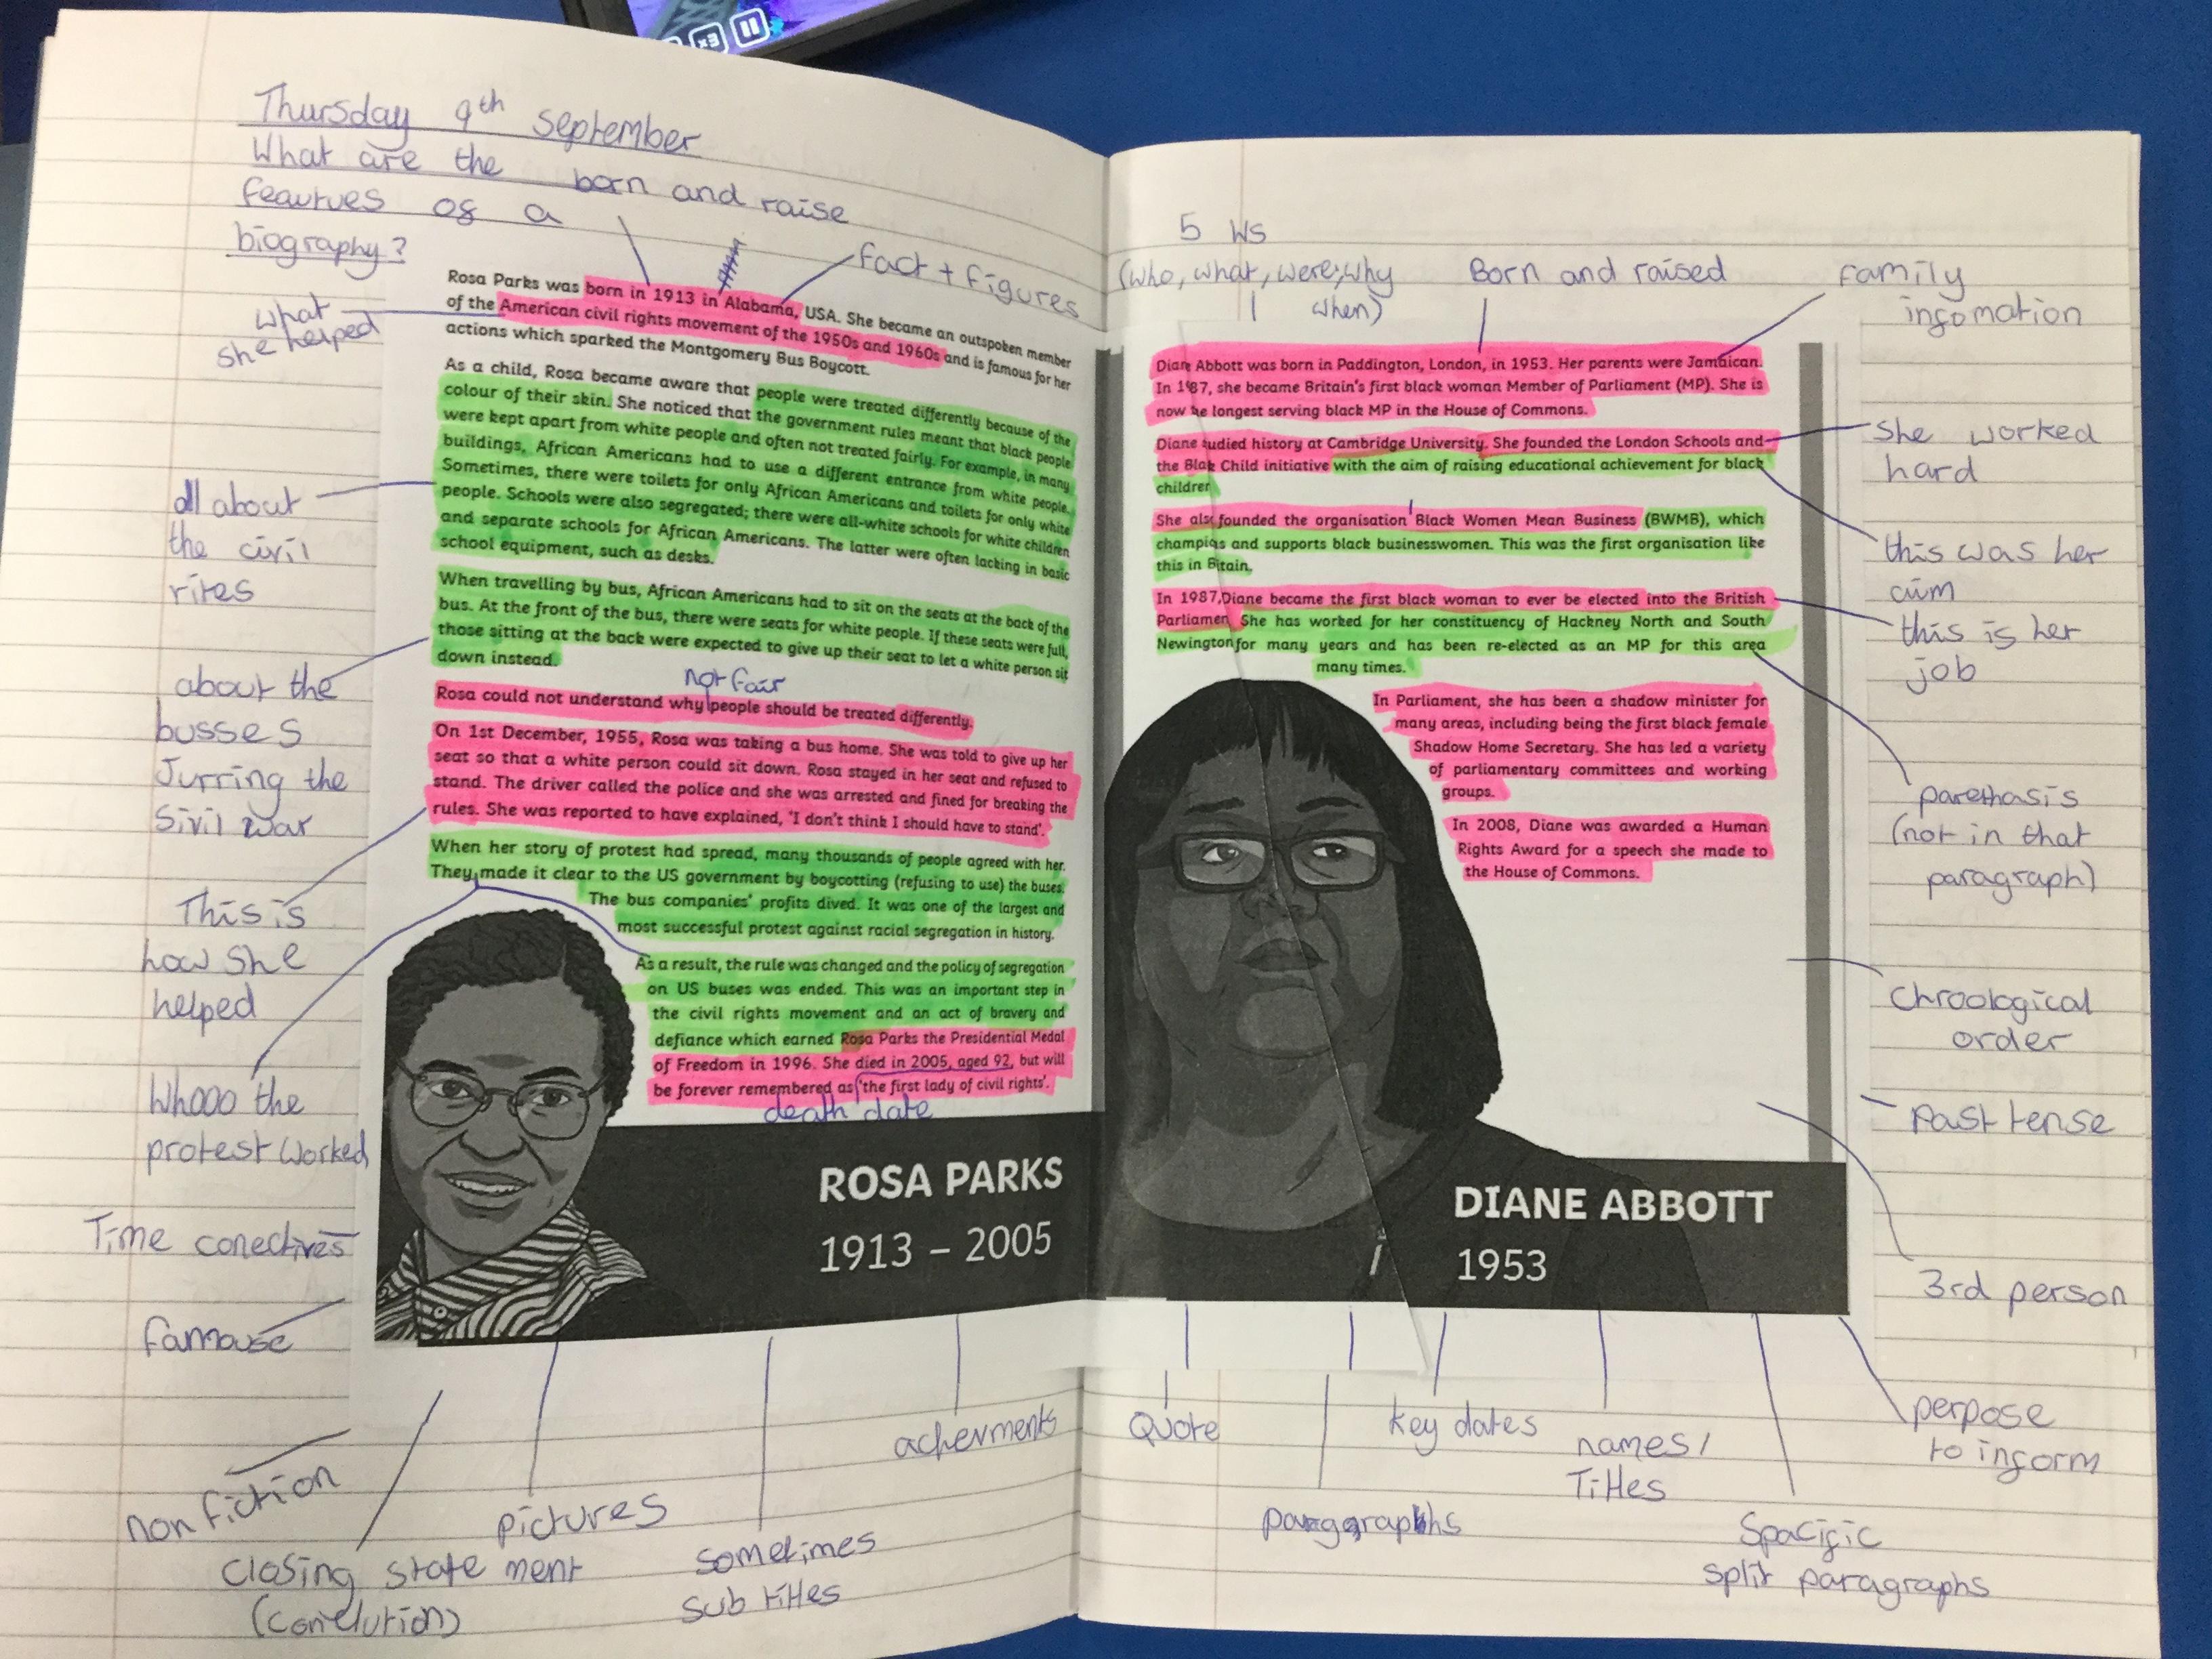 Thursday 9th September
What are the
feautures of a
biography?
born and raise
fact + figures
what
she helped
Rosa Parks was born in 1913 in Alabama, USA. She became an outspoken member
of the American civil rights movement of the 1950s and 1960s and is famous for her
actions which sparked the Montgomery Bus Boycott.
As a child, Rosa became aware that people were treated differently because of the
colour of their skin. She noticed that the government rules meant that black people
were kept apart from white people and often not treated fairly. For example, in many
buildings, African Americans had to use a different entrance from white people.
Sometimes, there were toilets for only African Americans and toilets for only white
people. Schools were also segregated; there were all-white schools for white children
and separate schools for African Americans. The latter were often lacking in basic
school equipment, such as desks.
all about
the civil
rites
When travelling by bus, African Americans had to sit on the seats at the back of the
bus. At the front of the bus, there were seats for white people. If these seats were full,
those sitting at the back were expected to give up their seat to let a white person sit
down instead.
about the
busses
Jurring the
Sivil war
not fair
Rosa could not understand why people should be treated differently.
On 1st December, 1955, Rosa was taking a bus home. She was told to give up her
seat so that a white person could sit down. Rosa stayed in her seat and refused to
stand. The driver called the police and she was arrested and fined for breaking the
rules. She was reported to have explained, 'I don't think I should have to stand'.
This is
how she
helped
When her story of protest had spread, many thousands of people agreed with her.
They made it clear to the US government by boycotting (refusing to use) the buses.
The bus companies' profits dived. It was one of the largest and
most successful protest against racial segregation in history.
As a result, the rule was changed and the policy of segregation
on US buses was ended. This was an important step in
the civil rights movement and an act of bravery and
defiance which earned Rosa Parks the Presidential Medal
of Freedom in 1996. She died in 2005, aged 92, but will
be forever remembered as 'the first lady of civil rights'.
death date
Whooo the
protest worked
Time conectives
famouse
ROSA PARKS
1913 – 2005
non fiction
closing state ment
(conclution)
pictures
sometimes
sub titles
achevments
5 Ws
(who, what, were, why
when)
Born and raised
family
infomation
Diane Abbott was born in Paddington, London, in 1953. Her parents were Jamaican.
In 1987, she became Britain's first black woman Member of Parliament (MP). She is
now he longest serving black MP in the House of Commons.
Diane tudied history at Cambridge University. She founded the London Schools and
the Blak Child initiative with the aim of raising educational achievement for black
childrer
She also founded the organisation Black Women Mean Business (BWMB), which
champions and supports black businesswomen. This was the first organisation like
this in Bitain.
In 1987, Diane became the first black woman to ever be elected into the British
Parliamen She has worked for her constituency of Hackney North and South
Newington for many years and has been re-elected as an MP for this area
many times.
In Parliament, she has been a shadow minister for
many areas, including being the first black female
Shadow Home Secretary. She has led a variety
of parliamentary committees and working
groups.
In 2008, Diane was awarded a Human
Rights Award for a speech she made to
the House of Commons.
she worked
hard
this was her
aim
this is her
job
parethasis
(not in that
paragraph)
chroological
order
past tense
3rd person
DIANE ABBOTT
1953
Quote
paragraphs
key dates
names/
Titles
Spacific
split paragraphs
perpose
to inform